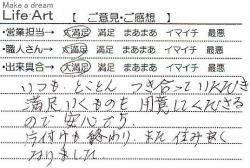 Make a dream
Life Art 【 ご意見・ご感想 】
・営業担当→ 大満足 満足 まあまあ イマイチ 最悪
・職人さん→ 大満足 満足 まあまあ イマイチ 最悪
・出来具合→ 大満足 満足 まあまあ イマイチ 最悪
いつも、とことん つき合っていただき
満足いくものを用意してくださる
ので安心です。
片付けも終わり、また住み易く
なりました